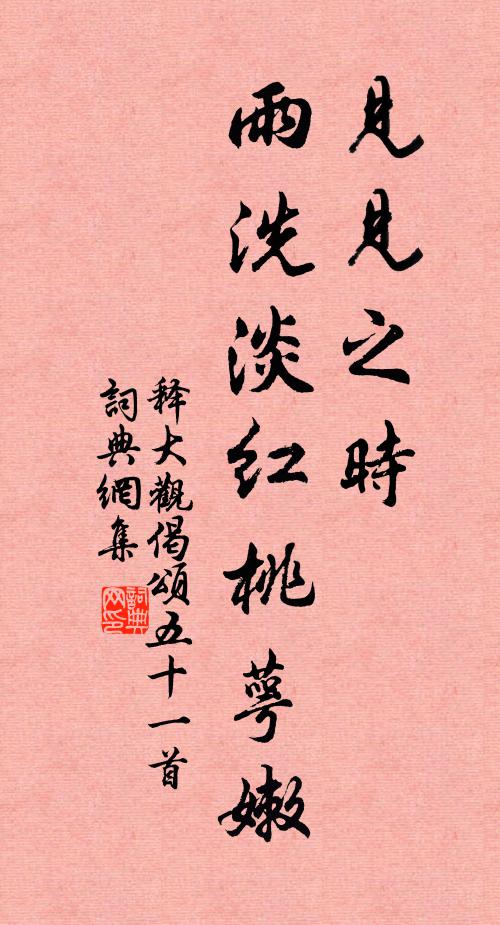 見見之時
雨洗淡红桃萼嫩
释大觀偈頌五十一首
詞典網集
詞典网印